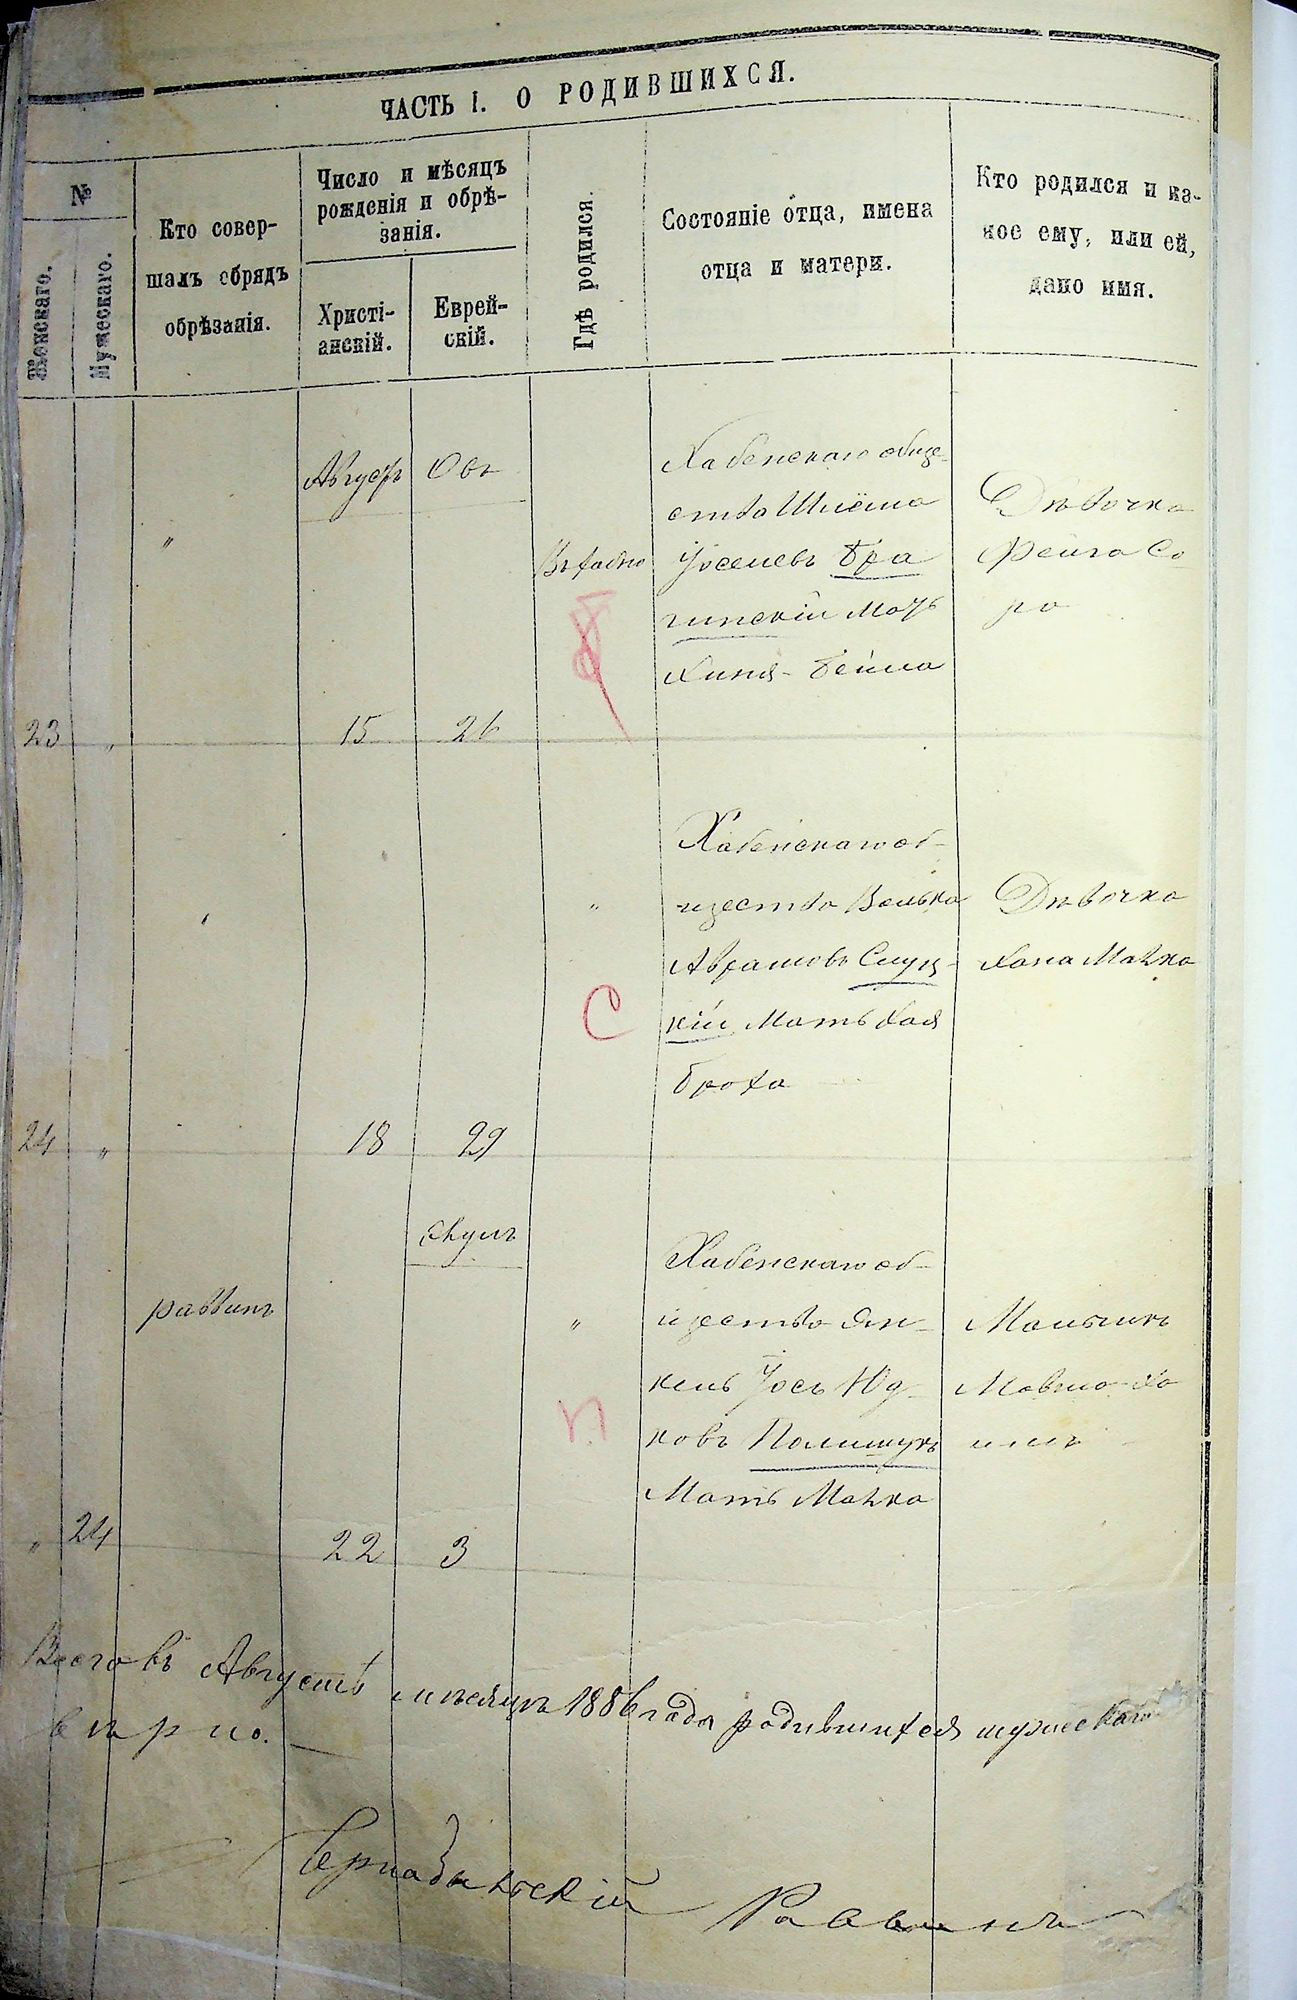 ЧАСТЬ I. О РОДИВШИХСЯ.
№
Женскаго.
Мужескаго.
Кто совер-
шалъ обрядъ
обрѣзанія.
Число и мѣсяцъ
рожденія и обрѣ-
занія.
Христі-
анскій.
Еврей-
скій.
Гдѣ родился.
Состояніе отца, имена
отца и матери.
Кто родился и ка-
кое ему, или ей,
дано имя.
Августъ
Овъ
"
Хабенскаго обще-
ства Шлёма
Іоселевъ Бра
гинскій Мать
Хиня-Бейла
Дѣвочка
Фейга Со
ра
23
"
15
26
Хабенскаго об-
щества Волько
Аврамовъ Слуц-
кій Мать Хая
Броха
"
"
С
Дѣвочка
Хана Малка
24
"
18
29
Элулъ
раввинъ
"
П
Хабенскаго об-
щества Ян-
кель Іось Юд-
ковъ Полищукъ
Мать Малка
Мальчикъ
Мовша-Ха
имъ
"
24
22
3
Всего въ Августѣ мѣсяцѣ 1886 года родившихся мужескаго
вѣрно.
Раввинъ